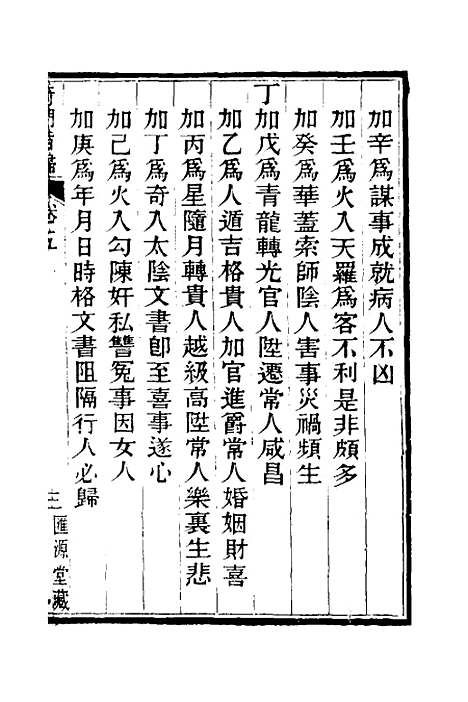 加辛爲謀事成就病人不凶
加壬爲火入天羅爲客不利是非頗多
加癸爲華蓋索師陰人害事災禍頻生
丁加戊爲青龍轉光官人陞遷常人咸昌
加乙爲人遁吉格貴人加官進爵常人婚姻財喜
加丙爲星隨月轉貴人越級高陞常人樂裏生悲
加丁爲奇入太陰文書卽至喜事遂心
加己爲火入勾陳奸私讐冤事因女人
加庚爲年月日時格文書阻隔行人必歸
匯源堂藏